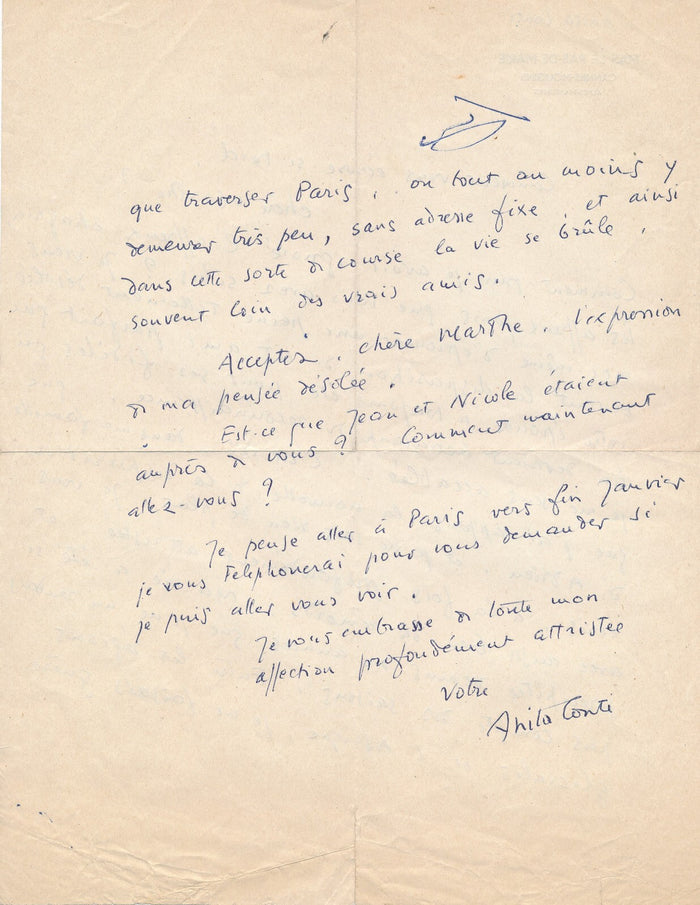 que traverser Paris, ou tout au moins y
demeurer très peu, sans adresse fixe, et ainsi
dans cette sorte de course la vie se brûle,
souvent loin des vrais amis.
Acceptez, chère Marthe, l'expression
de ma pensée désolée.
Est-ce que Jean et Nicole étaient
auprès de vous ? Comment maintenant
allez-vous ?
Je pense aller à Paris vers fin Janvier
je vous téléphonerai pour vous demander si
je puis aller vous voir.
Je vous embrasse de toute mon
affection profondément attristée
Votre
Anita Conti